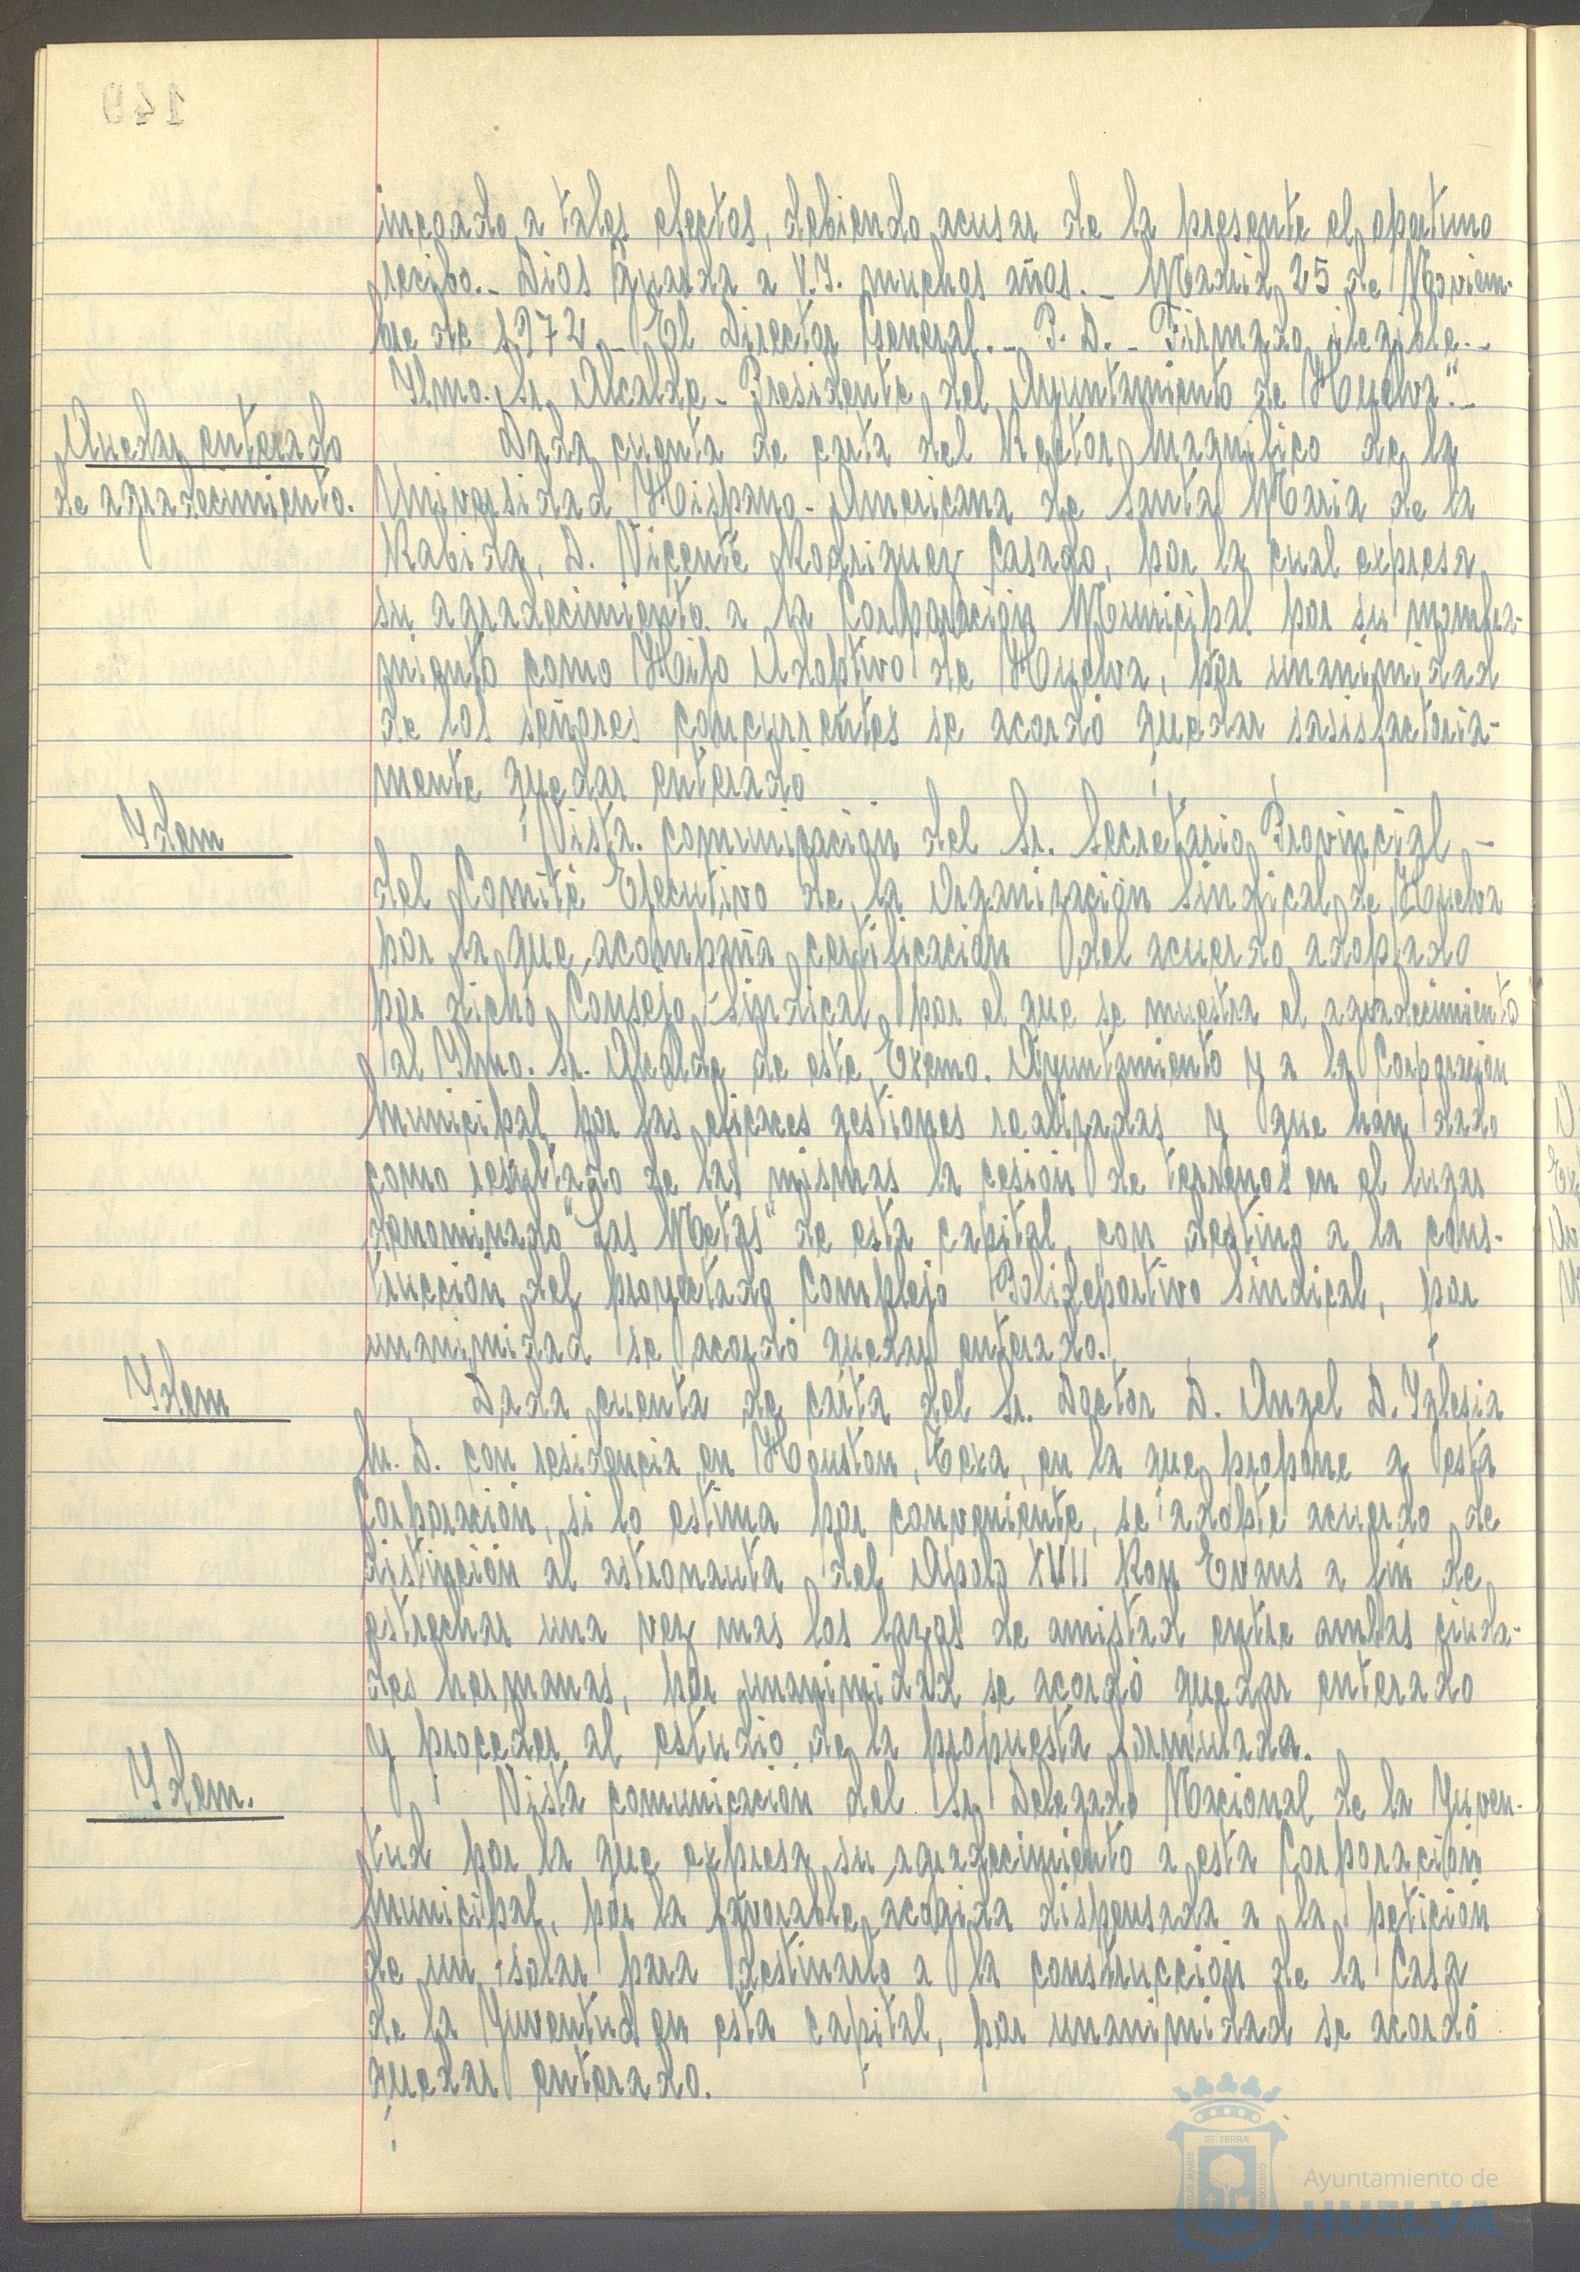 149
incoado a tales efectos, debiendo acusar de la presente el oportuno
recibo.- Dios guarda a V.I. muchos años.- Madrid, 25 de Noviem-
bre de 1972.- El Director General.- P.D.- Firmado ilegible.-
Ilmo. Sr. Alcalde-Presidente del Ayuntamiento de Huelva".-
Quedar enterado
de agradecimiento.
Dada cuenta de carta del Rector Magnifico de la
Universidad Hispano-Americana de Santa Maria de la
Rabida, D. Vicente Rodriguez Casado, por la cual expresa
su agradecimiento a la Corporación Municipal por su nombra-
miento como Hijo Adoptivo de Huelva, por unanimidad
de los señores concurrentes se acordó quedar sasisfactoria-
mente quedar enterado
Idem
Vista comunicación del Sr. Secretario Provincial -
del Comité Ejecutivo de la Organización Sindical de Huelva
por la que acompaña certificación del acuerdo adoptado
por dicho Consejo Sindical por el que se muestra el agradecimiento
al Ilmo. Sr. Alcalde de este Excmo. Ayuntamiento y a la Corporación
Municipal por las eficaces gestiones realizadas y que han dado
como resultado de las mismas la cesión de terrenos en el lugar
denominado "Las Metas" de esta capital, con destino a la cons-
trucción del proyectado Complejo Polideportivo Sindical, por
unanimidad se acordó quedar enterado.
Idem
Dada cuenta de carta del Sr. Doctor D. Angel D. Iglesia
M. D. con residencia en Houston, Texa, en la que propone a esta
Corporación, si lo estima por conveniente, se adopte acuerdo de
distinción al astronauta del Apolo XVII Ron Evans a fin de
estrechar una vez mas los lazos de amistad entre ambas ciuda-
des hermanas, por unanimidad se acordó quedar enterado
y proceder al estudio de la propuesta formulada.
Idem.
Vista comunicación del Sr. Delegado Nacional de la Juven-
tud por la que expresa su agradecimiento a esta Corporación
Municipal, por la favorable acogida dispensada a la petición
de un solar para destinarlo a la construcción de la Casa
de la Juventud en esta capital, por unanimidad se acordó
quedar enterado.
Ayuntamiento de
HUELVA